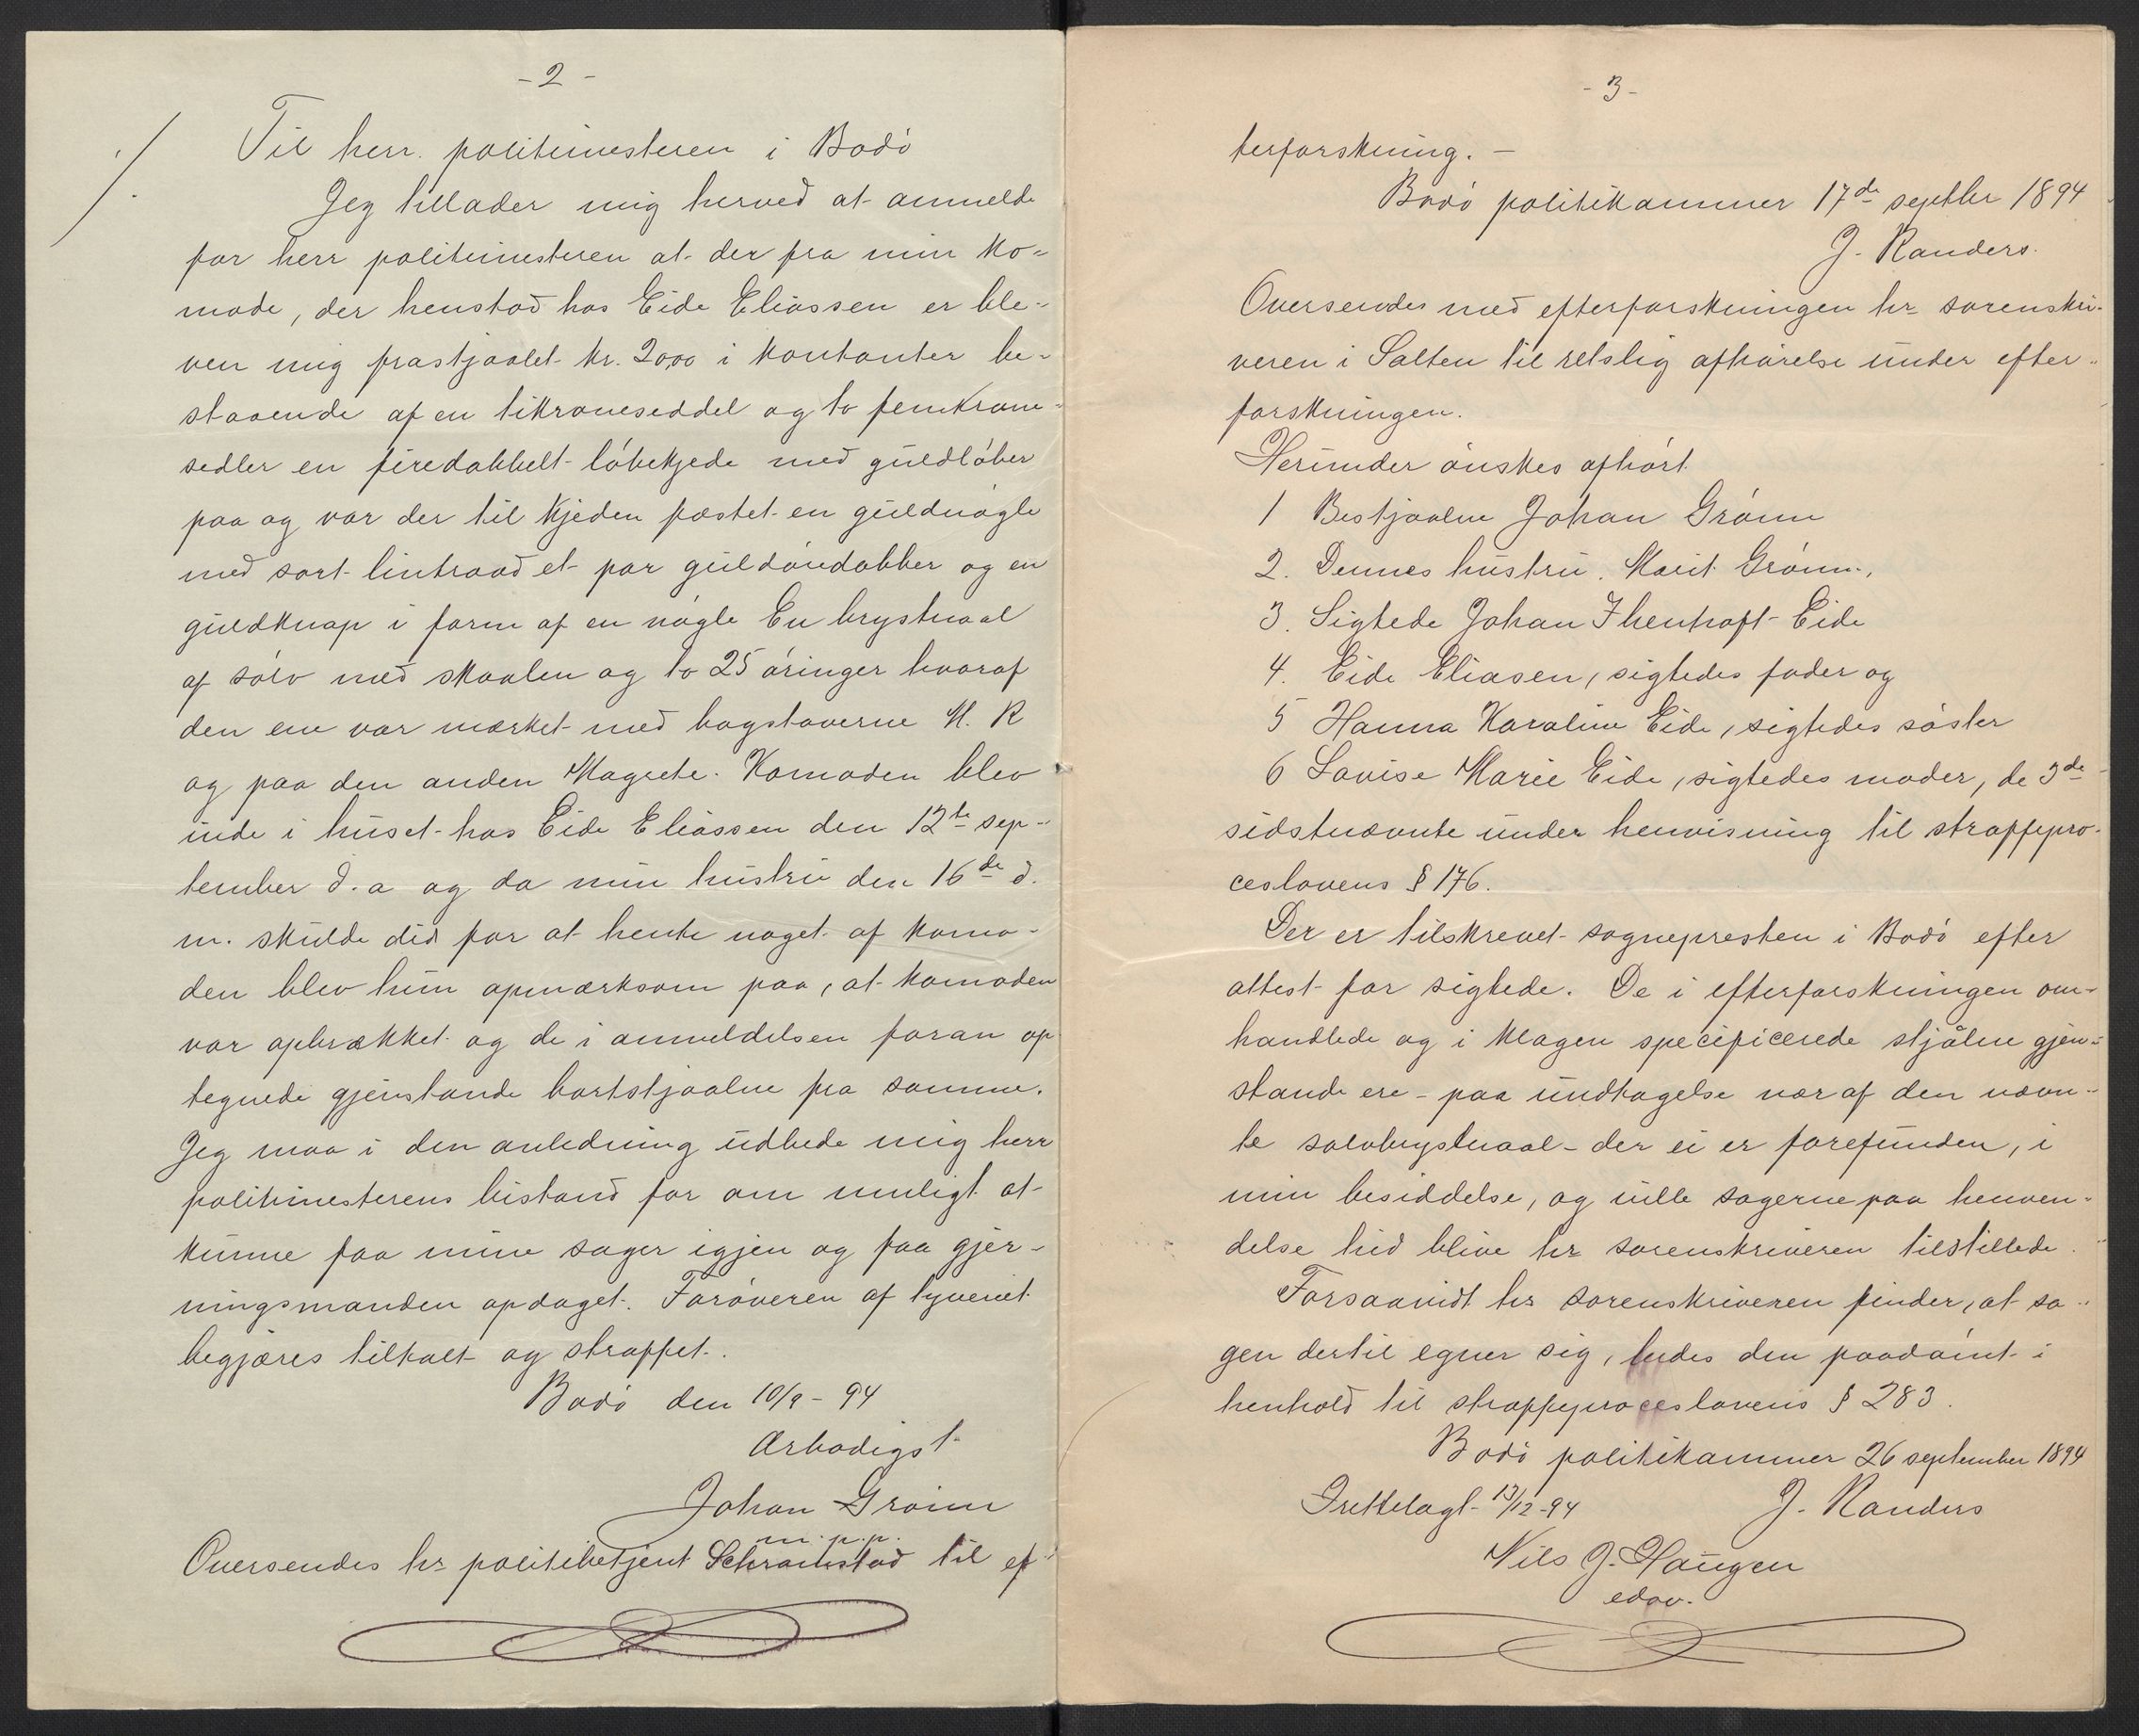 - 2 -
Til herr. politimesteren i Bodó
Jeg tillader mig herved at anmelde
for herr politimesteren at der fra min ko=
mode, der henstod hos Eide Eliassen er ble-
ven mig frastjaalet kr. 20,00 i kontanter be-
staaende af en tikroneseddel og to femkrone-
sedler en firedobbelt lóbekjede med guldlóber
paa og var der til kjeden fæstet en guldnógle
med sort lintraad et par guldóredobber og en
guldknap i form af en nógle En brystnaal
af sólv med skaalen og to 25 óringer hvoraf
den ene var mærket med bogstaverne M. R
og paa den anden Magrete. Komoden blev
inde i huset hos Eide Eliassen den 12te sep-
tember d. a og da min hustru den 16de d.
m. skulde did for at hente noget af komo-
den blev hun opmærksom paa, at komoden
var opbrækket og de i anmeldelsen foran op
tegnede gjenstande bortstjaalne fra samme.
Jeg maa i den anledning udbede mig herr
politimesterens bistand for om muligt at
kunne faa mine sager igjen og faa gjer-
ningsmanden opdaget. Foróveren af tyveriet
begjæres tiltalt og straffet.
Bodó den 10/9 - 94
Ærbodigst
Johan Gróinn
m. p. p.
Oversendes hr politibetjent Schramstad til ef-
- 3 -
terforskning. -
Bodó politikammer 17de septbr 1894
J. Randers.
Oversendes med efterforskningen hr sorenskri-
veren i Salten til retslig afhórelse under efter-
forskningen.
Herunder ónskes afhórt
1 Bestjaalne Johan Grónn
2. Dennes hustru. Marit Grónn.,
3. Sigtede Johan Ihentoft Eide
4. Eide Eliasen, sigtedes fader og
5 Hanna Karoline Eide, sigtedes sóster
6 Lovise Marie Eide, sigtedes moder, de 3de
sidstnævnte under henvisning til straffepro-
ceslovens § 176.
Der er tilskrevet sognepresten i Bodó efter
attest for sigtede. De i efterforskningen om-
handlede og i klagen specificerede stjålne gjen-
stande ere - paa undtagelse nær af den nævn-
te solvbrystnaal - der ei er forefunden, i
min besiddelse, og ville sagerne paa henven-
delse hid blive hr sorenskriveren tilstillede.
Forsaavidt hr sorenskriveren finder, at sa-
gen dertil egner sig, bedes den paadómt i
henhold til straffeproceslovens § 283.
Bodó politikammer 26 september 1894
J. Randers
Frettelagt 13/12-94
Nils J. Haugen
edsv.